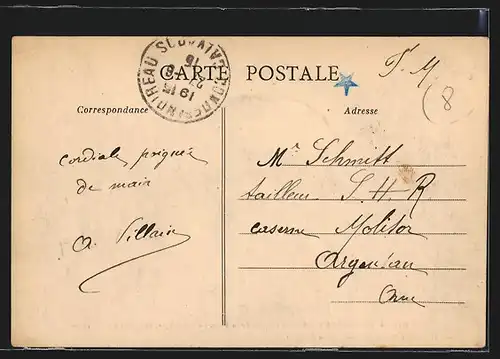 CARTE POSTALE
F. M.
8
Correspondance
Adresse
cordiale poignée
de main
A. Villain
Mr Schmitt
tailleur S. H. R.
caserne Molitor
Argentan
Orne